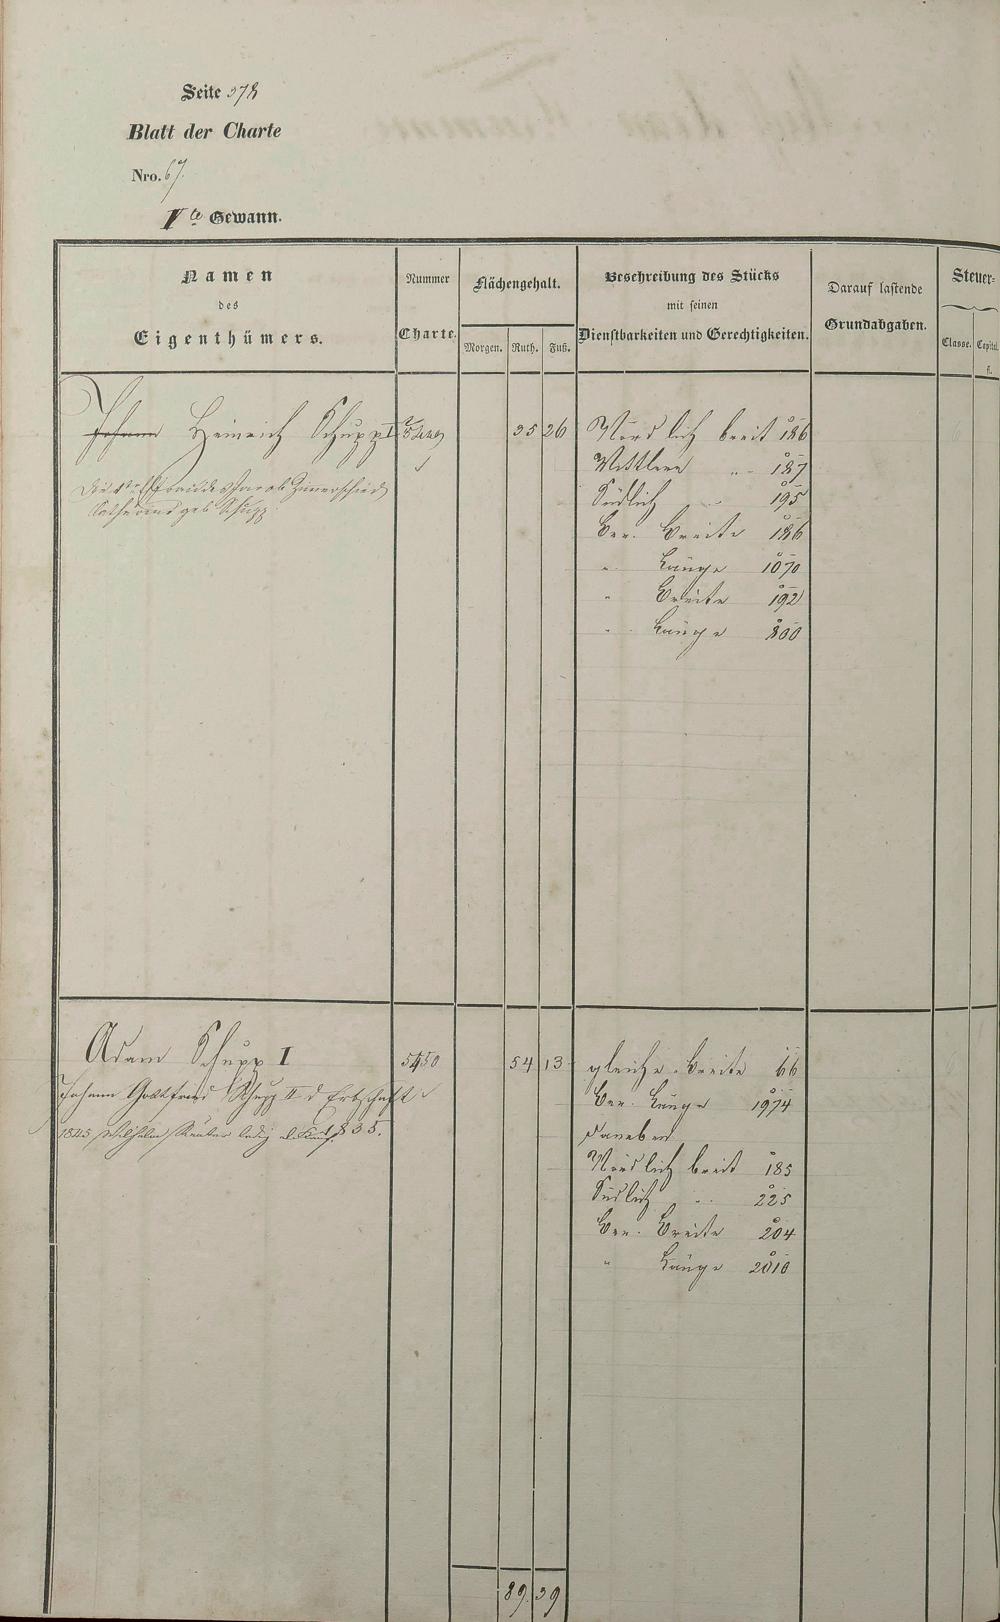 Seite 378
Blatt der Charte
Nro. 67.
Vte Gewann.
Namen
des
Eigenthümers.
Nummer
Charte.
Flächengehalt.
Morgen. Ruth. Fuß.
Beschreibung des Stücks
mit seinen
Dienstbarkeiten und Gerechtigkeiten.
Darauf lastende
Grundabgaben.
Steuer-
Classe. Capital.
fl.
Johann Heinrich Schupp I 5449 35 26 Nördlich breit 186
Mittlere " 187
Die Ehefrau des Jacob Zimerschied
Südlich " 195
Catharine geb Schupp
Ber. Breite 186
" Länge 1070
" Breite 192
" Länge 800
Adam Schupp I 5450 54 13 gleiche Breite 66
Johann Gottfried Schupp II d Erbschaft
Ber. Länge 1974
1845 Wilhelm ledig d. Kauf § 35.
daneben
Nördlich breit 185
Südlich " 225
Ber. Breite 204
" Länge 2010
89 39